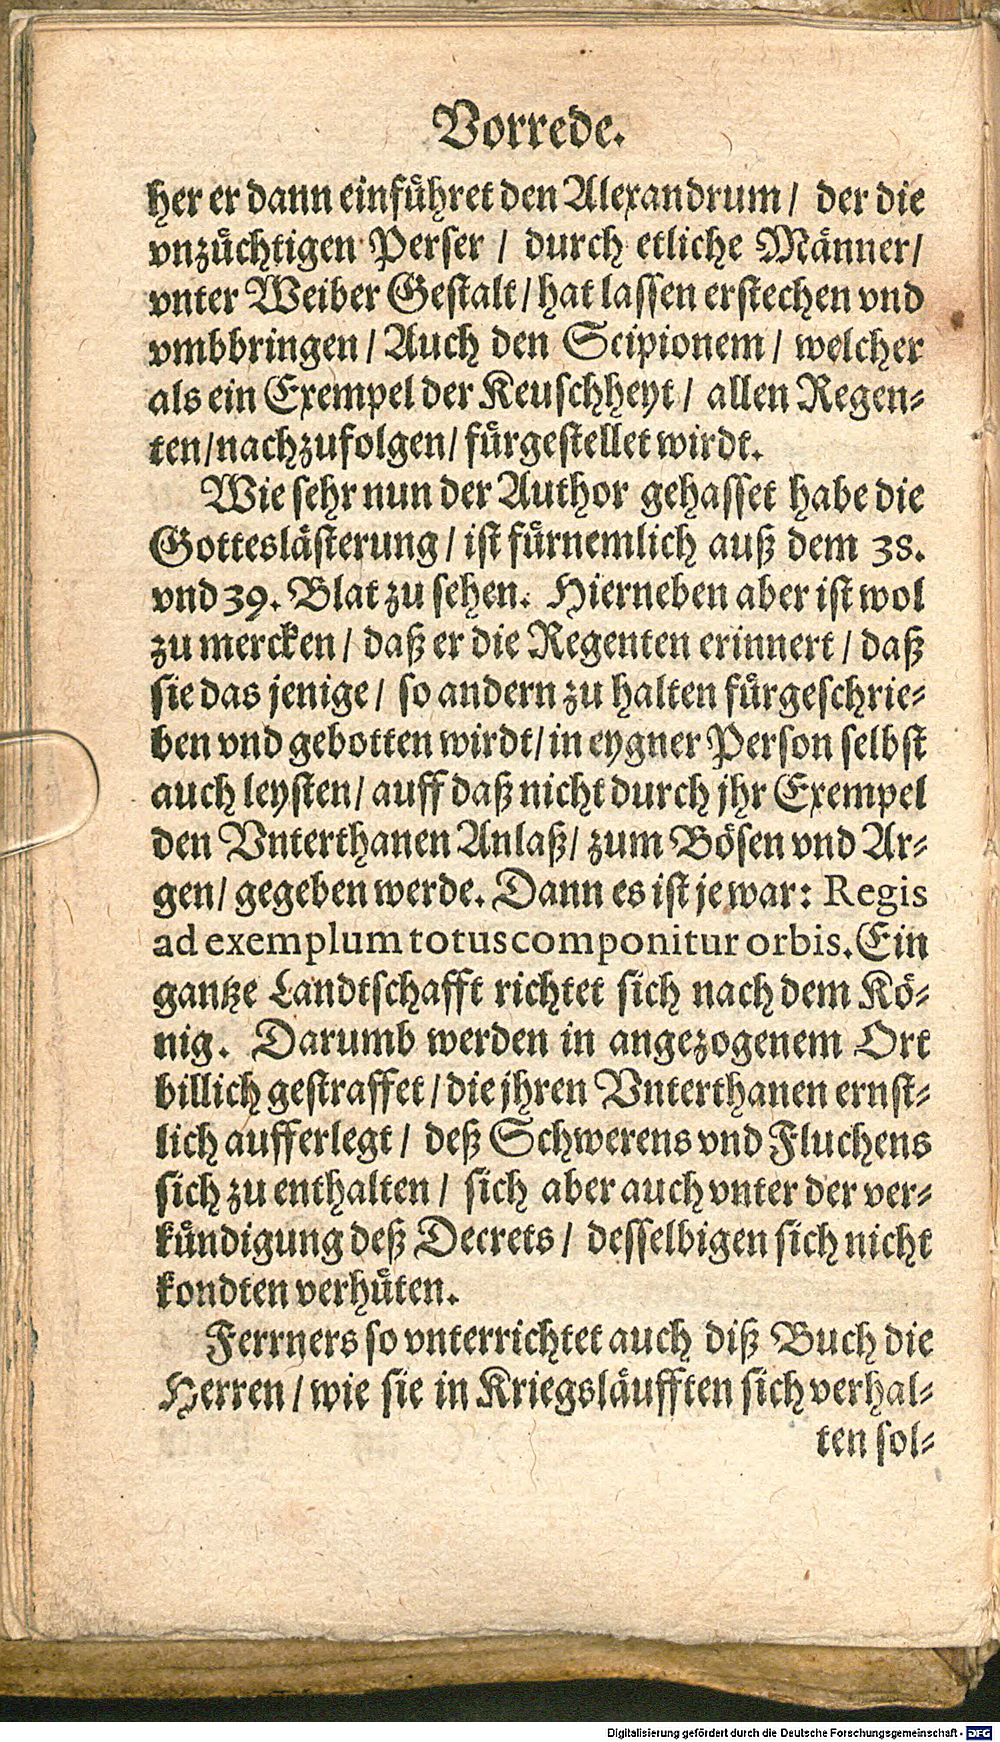 Vorrede.
her er dann einfuͤhret den Alexandrum / der die
vnzuͤchtigen Perser / durch etliche Maͤnner /
vnter Weiber Gestalt / hat lassen erstechen vnd
vmbbringen / Auch den Scipionem / welcher
als ein Exempel der Keuschheyt / allen Regen-
ten / nachzufolgen / fuͤrgestellet wirdt.
Wie sehr nun der Author gehasset habe die
Gotteslaͤsterung / ist fuͤrnemlich auß dem 38.
vnd 39. Blat zu sehen. Hierneben aber ist wol
zu mercken / daß er die Regenten erinnert / daß
sie das jenige / so andern zu halten fuͤrgeschrie-
ben vnd gebotten wirdt / in eygner Person selbst
auch leysten / auff daß nicht durch jhr Exempel
den Vnterthanen Anlaß / zum Boͤsen vnd Ar-
gen / gegeben werde. Dann es ist je war: Regis
ad exemplum totus componitur orbis. Ein
gantze Landtschafft richtet sich nach dem Koͤ-
nig. Darumb werden in angezogenem Ort
billich gestraffet / die jhren Vnterthanen ernst-
lich aufferlegt / deß Schwerens vnd Fluchens
sich zu enthalten / sich aber auch vnter der ver-
kuͤndigung deß Decrets / desselbigen sich nicht
kondten verhuͤten.
Ferrners so vnterrichtet auch diß Buch die
Herren / wie sie in Kriegslaͤufften sich verhal-
ten sol-
Digitalisierung gefördert durch die Deutsche Forschungsgemeinschaft - DFG